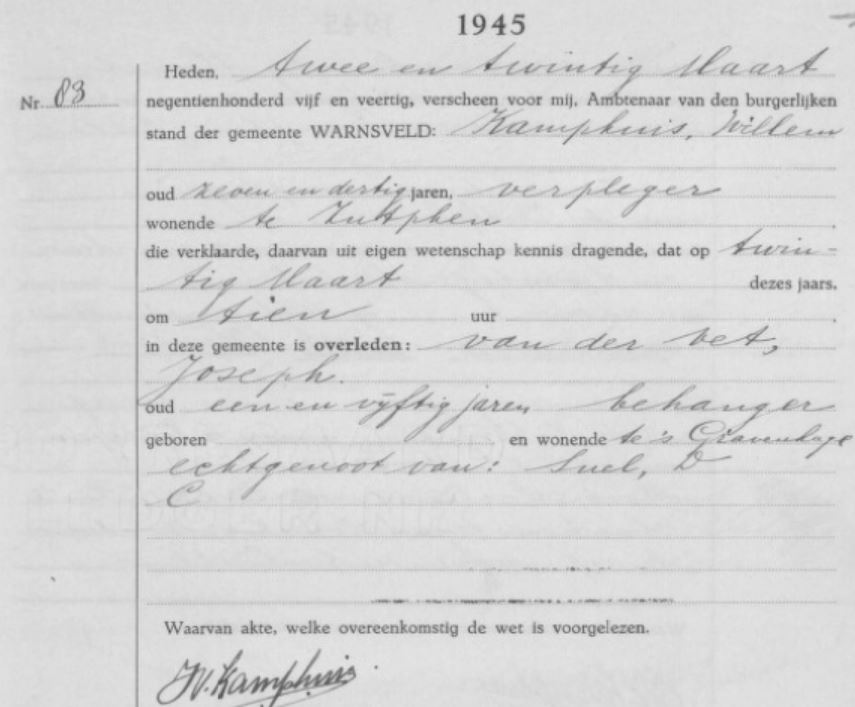 1945
Heden, twee en twintig Maart
Nr 83 negentienhonderd vijf en veertig, verscheen voor mij, Ambtenaar van den burgerlijken
stand der gemeente WARNSVELD: Kamphuis, Willem
oud zeven en dertig jaren, verpleger
wonende te Zutphen
die verklaarde, daarvan uit eigen wetenschap kennis dragende, dat op twin-
tig Maart dezes jaars,
om tien uur
in deze gemeente is overleden: van der Vet,
Joseph.
oud een en vijftig jaren, behanger
geboren en wonende te 's Gravenhage
echtgenoot van: Snel, D
C
Waarvan akte, welke overeenkomstig de wet is voorgelezen.
W. Kamphuis.